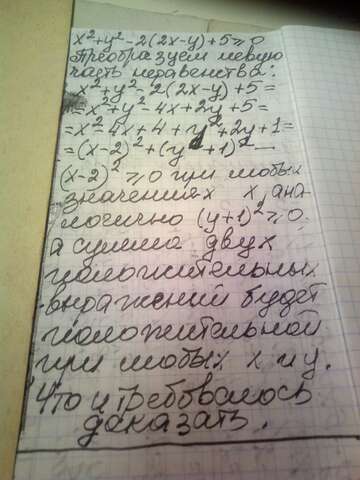 x²+y²-2(2x-y)+5≥0
Преобразуем левую
часть неравенства:
x²+y²-2(2x-y)+5=
=x²+y²-4x+2y+5=
=x²-4x+4+y²+2y+1=
=(x-2)²+(y+1)²—
(x-2)²≥0 при любых
значениях x, ана-
логично (y+1)²≥0,
а сумма двух
положительных
выражений будет
положительной
при любых x и y.
Что и требовалось
доказать.